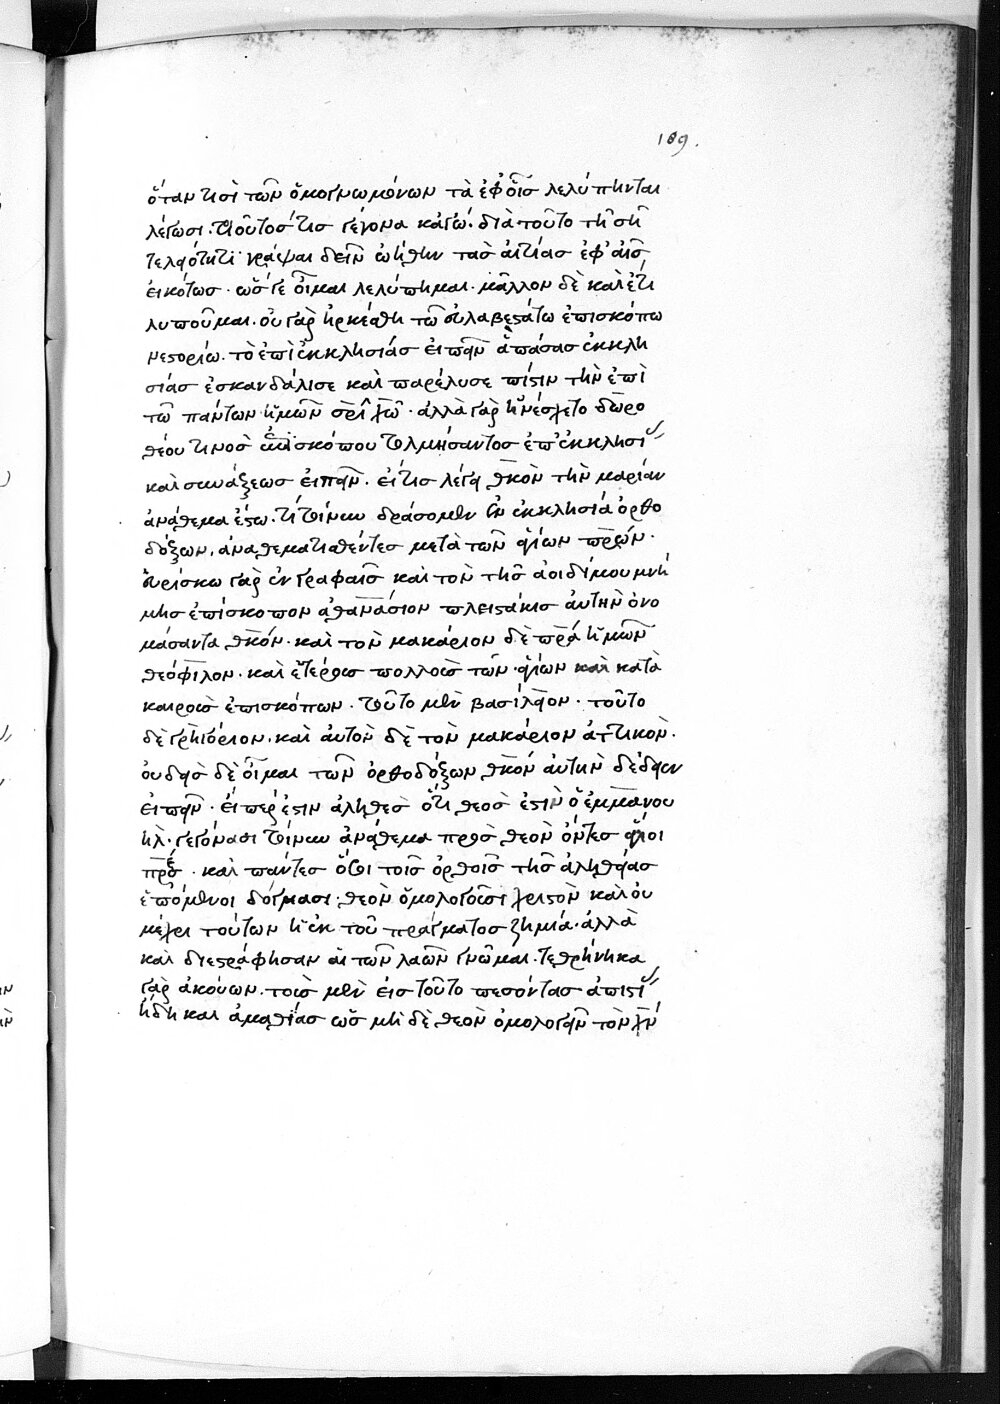 189.
ὅταν τισὶ τῶν ὁμογνωμόνων τὰ ἐφ᾽ οἷς λελύπηνται
λέγωσι. τοιοῦτος τις γέγονα κἀγώ. διὰ τοῦτο τῇ σῇ
τελειότητι γράψαι δεῖν ᾠήθην τὰς αἰτίας ἐφ᾽ αἷς
εἰκότως. ὥς γε οἶμαι λελύπημαι. μᾶλλον δὲ καὶ ἔτι
λυποῦμαι. οὐ γὰρ ἠρκέσθη τῷ εὐλαβεστάτῳ ἐπισκόπῳ
νεστορίῳ. τὸ ἐπὶ ἐκκλησίας εἰπεῖν ἁπάσας ἐκκλη
σίας ἐσκανδάλισε καὶ παρέλυσε πίστιν τὴν ἐπὶ
τῷ πάντων ἡμῶν σρι χῷ. ἀλλὰ γὰρ ἠνέσχετο δωρο
θέου τινος ἐπισκόπου τολμήσαντος ἐπ᾽ ἐκκλησί
καὶ συνάξεως εἰπεῖν. εἴ τις λέγει θκον τὴν μαρίαν
ἀνάθεμα ἔστω. τί τοίνυν δράσομεν ἐν ἐκκλησίᾳ ὀρθο
δόξων, ἀναθεματισθέντες μετὰ τῶν ἁγίων πρων.
εὑρίσκω γὰρ ἐν γραφαῖς καὶ τὸν τῆς ἀοιδίμου μνή
μης ἐπίσκοπον ἀθανάσιον πλειστάκις αὐτὴν ὀνο
μάσαντα θκον. καὶ τὸν μακάριον δὲ πρα ἡμῶν
θεόφιλον. καὶ ἑτέρους πολλοὺς τῶν ἁγίων καὶ κατὰ
καιροὺς ἐπισκόπων. τοῦτο μὲν βασίλειον. τοῦτο
δὲ γρηγόριον. καὶ αὐτὸν δὲ τὸν μακάριον ἀττικὸν.
οὐδεὶς δὲ οἶμαι τῶν ὀρθοδόξων θκον αὐτὴν δέδιεν
εἰπεῖν. εἴπερ ἐστιν ἀληθὲς ὅτι θεος ἐστὶν ὁ ἐμμανου
ήλ. γεγόνασι τοίνυν ἀνάθεμα πρὸς θεὸν ὄντες ἅγιοι
πρες. καὶ πάντες ὅσοι τοῖς ὀρθοῖς τῆς ἀληθείας
ἑπόμενοι δόγμασι. θεὸν ὁμολογοῦσι χριστὸν καὶ οὐ
μέχρι τούτων ἡ ἐκ τοῦ πράγματος ζημία. ἀλλὰ
καὶ διεστράφησαν αἱ τῶν λαῶν γνῶμαι. τεθρήνηκα
γὰρ ἀκούων. τοὺς μὲν εἰς τοῦτο πεσόντας ἀπιστί
ἤδη καὶ ἀμαθίας ὡς μὴ δὲ θεὸν ὁμολογεῖν τὸν χν